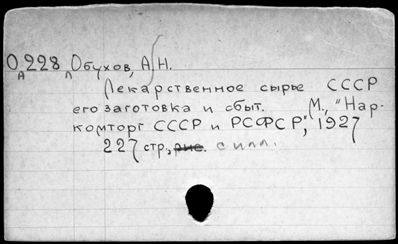 О.228 Обухов, А.Н.
А л
Лекарственное сырье СССР
его заготовка и сбыт. М., "Нар-
комторг СССР и РСФСР", 1927
227 стр., рис. с илл.